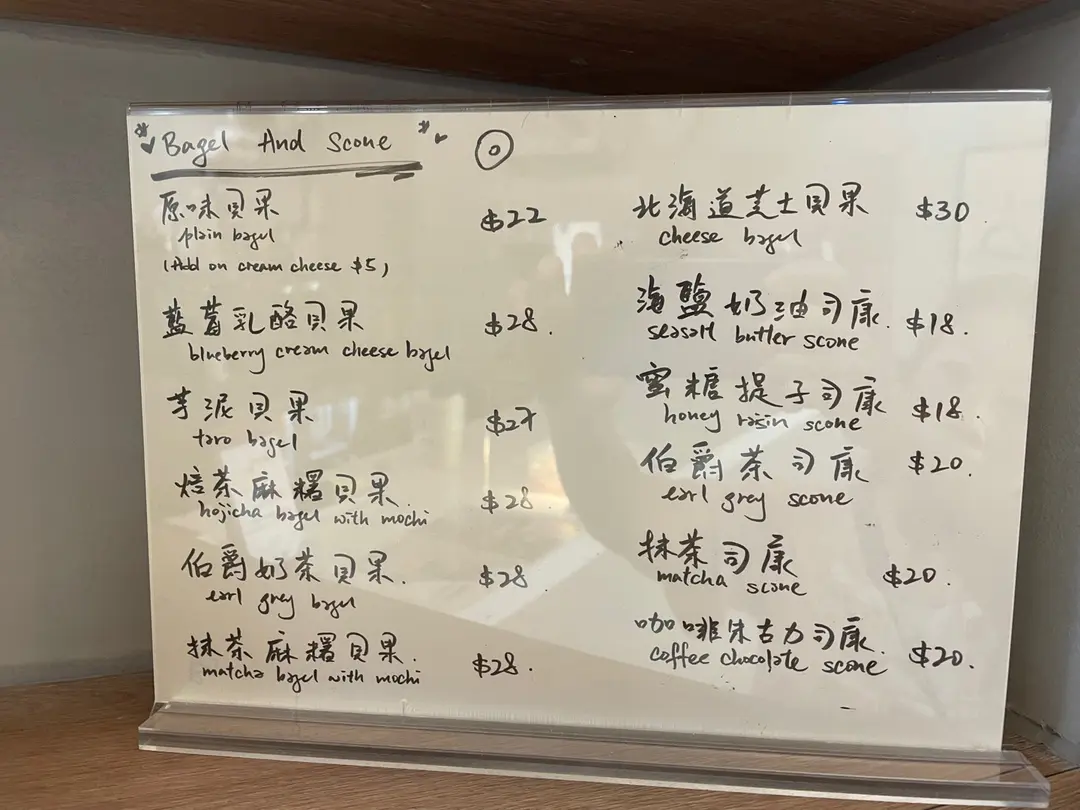 Bagel And Scone
原味貝果 $22
plain bagel
(Add on cream cheese $5)
藍莓乳酪貝果 $28.
blueberry cream cheese bagel
芋泥貝果 $27
taro bagel
焙茶麻糬貝果. $28.
hojicha bagel with mochi
伯爵奶茶貝果. $28
earl grey bagel
抹茶麻糬貝果. $28.
matcha bagel with mochi
北海道芝士貝果 $30.
cheese bagel
海鹽奶油司康. $18.
seasalt butter scone
蜜糖提子司康 $18.
honey rasin scone
伯爵茶司康 $20.
earl grey scone
抹茶司康 $20.
matcha scone
咖啡朱古力司康. $20.
coffee chocolate scone